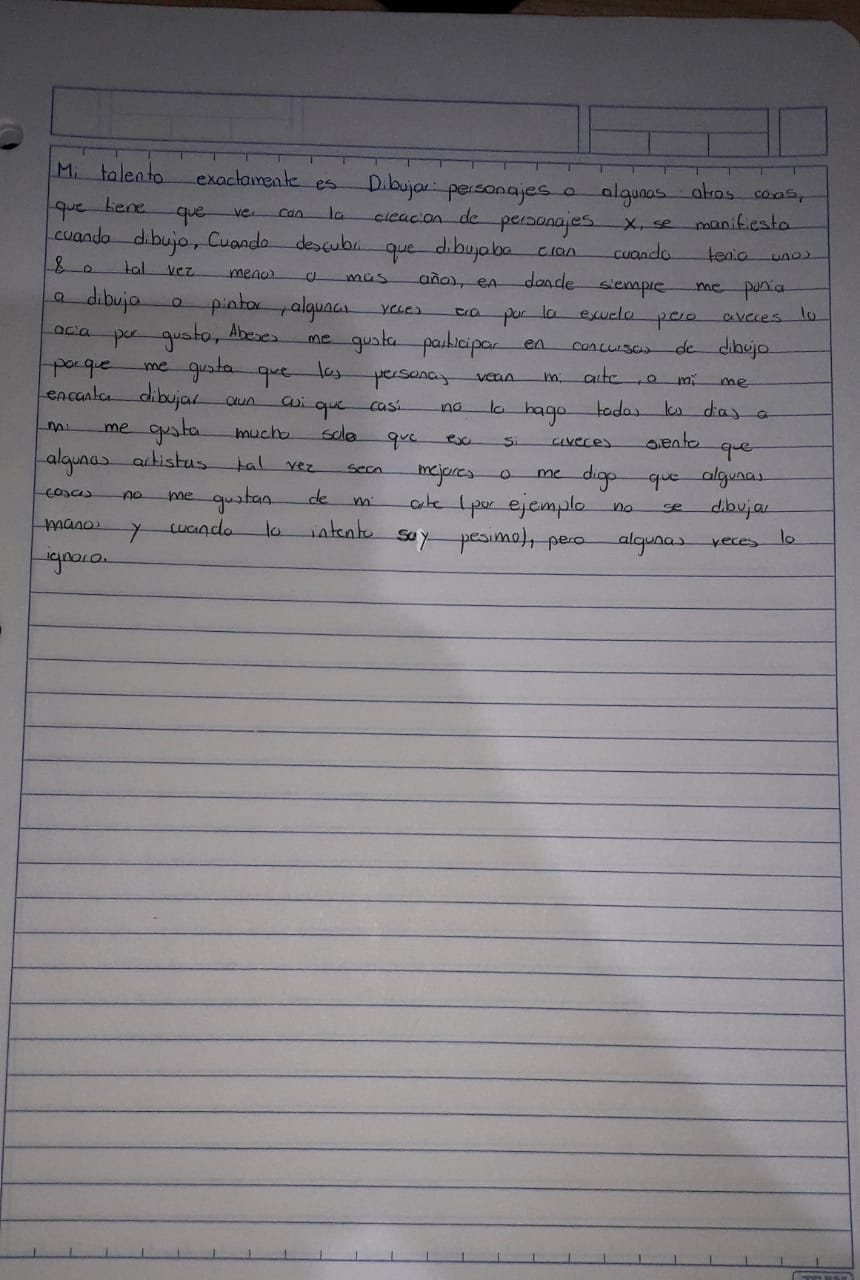 Mi talento exactamente es Dibujar: personajes o algunas otras cosas,
que tiene que ver con la creacion de personajes x, se manifiesta
cuando dibujo, Cuando descubri que dibujaba cran cuando tenia unos
8 o tal vez menos o mas años, en donde siempre me punia
a dibuja o pintar, algunas veces era por la escuela pero aveces lo
acia por gusto, Abeses me gusta participar en concursos de dibujo
porque me gusta que las personas vean mi arte, a mi me
encanta dibujar aun asi que casi no lo hago todos los dias a
mi me gusta mucho solo que eso si aveces siento que
algunos artistas tal vez sean mejores o me digo que algunas
cosas no me gustan de mi arte (por ejemplo no se dibujar
manos y cuando lo intento soy pesimo), pero algunas veces lo
ignoro.